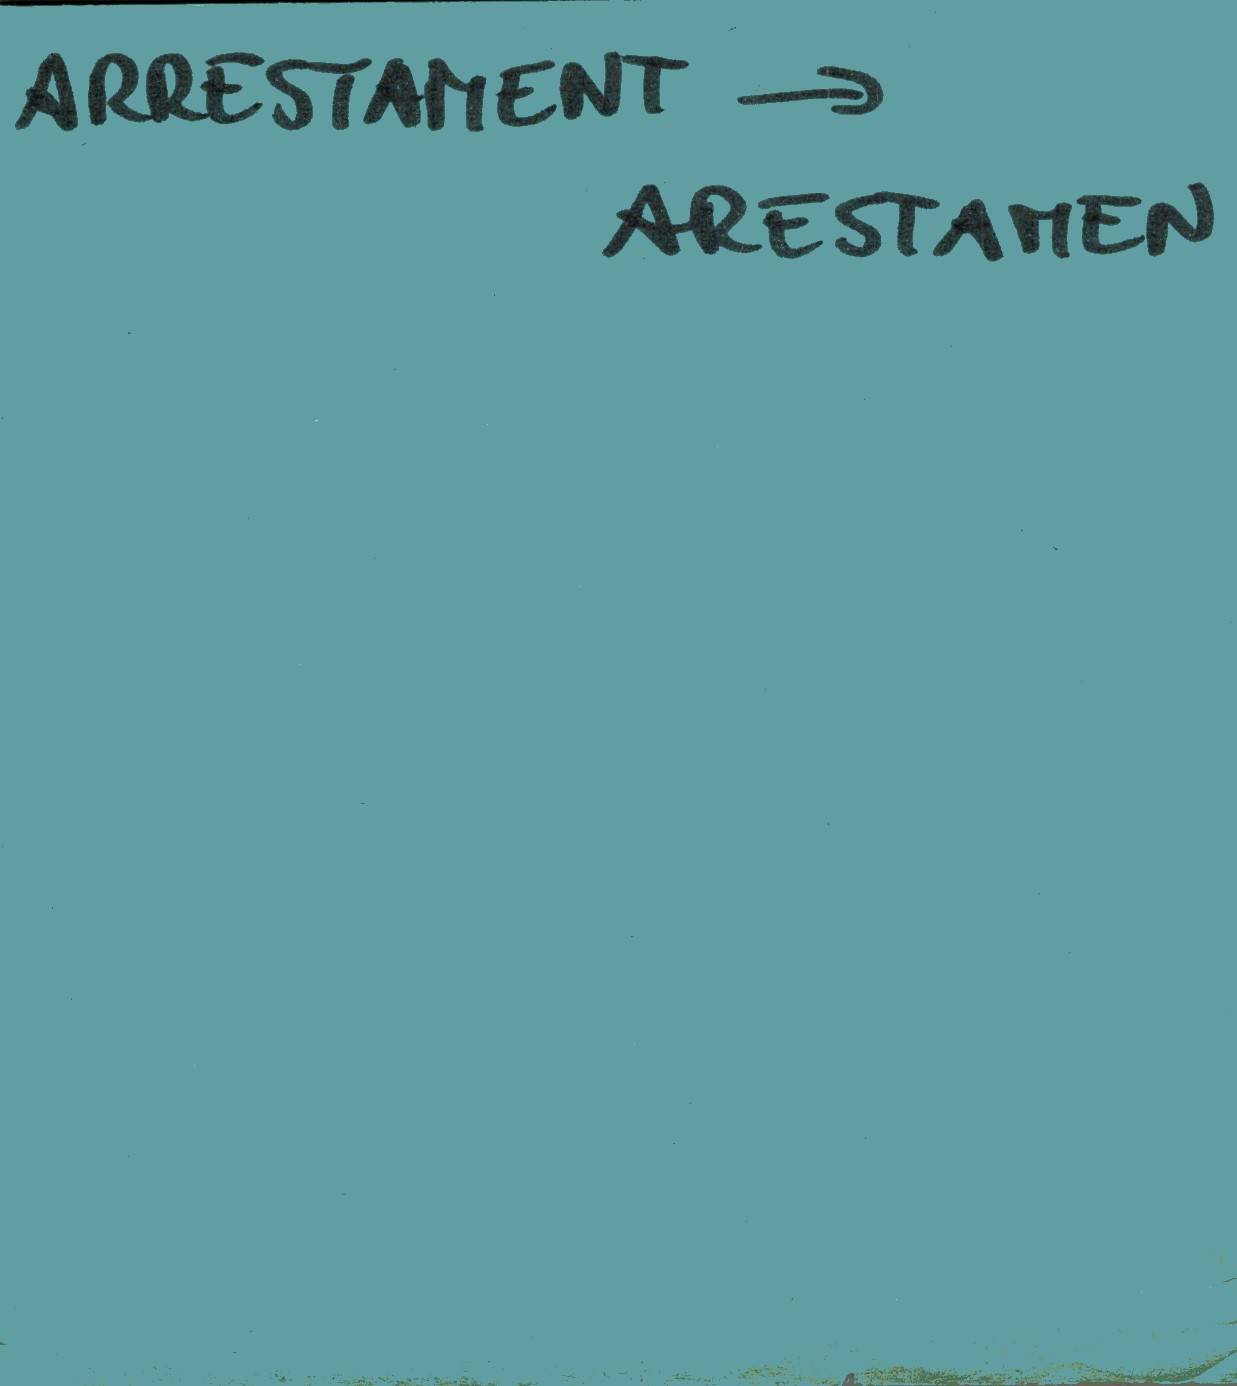 ARRESTAMENT →
ARESTAMEN